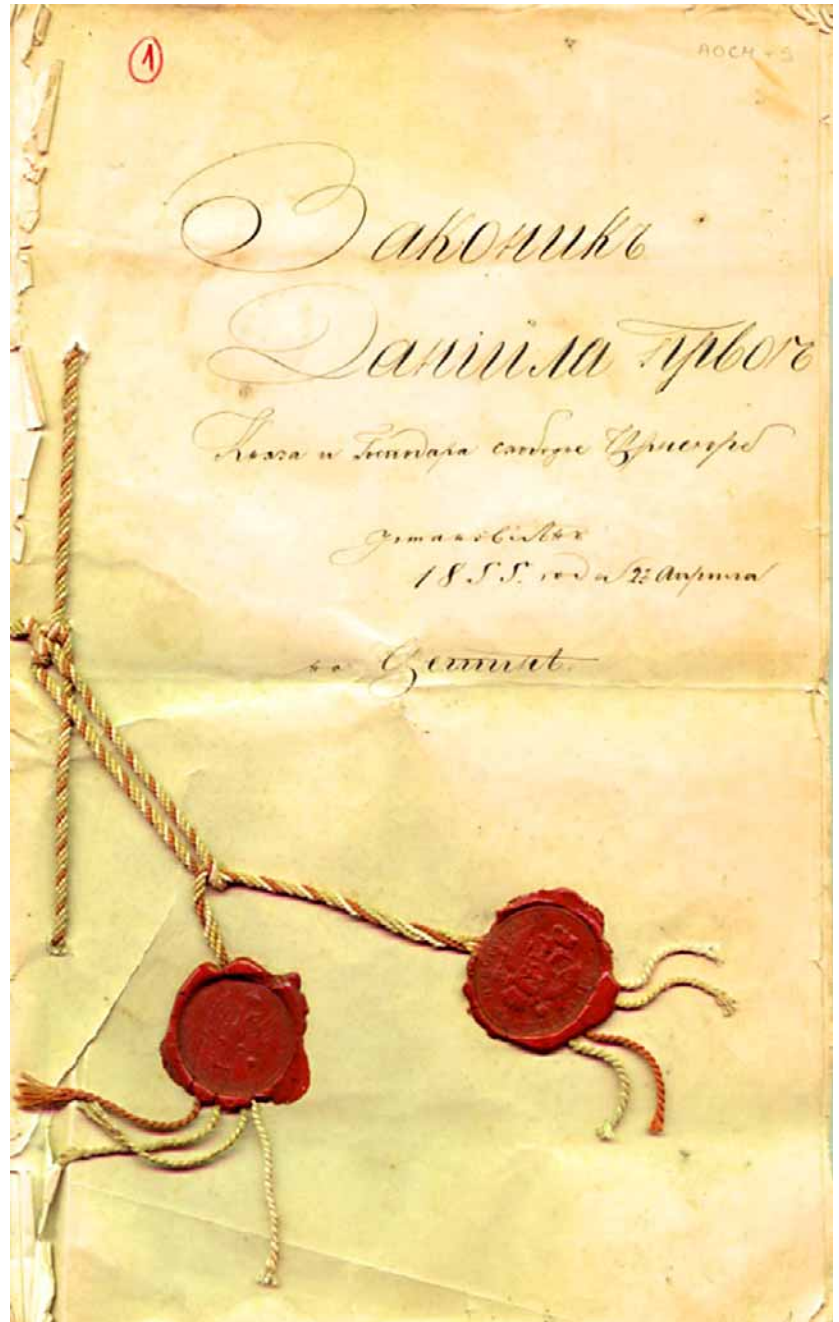 1
АОСМ
Законикъ
Даніила првог
Књаза и Господара слободне Црнегоре
установлѣнъ
1855. года 23 Априла
на Цетинѣ.